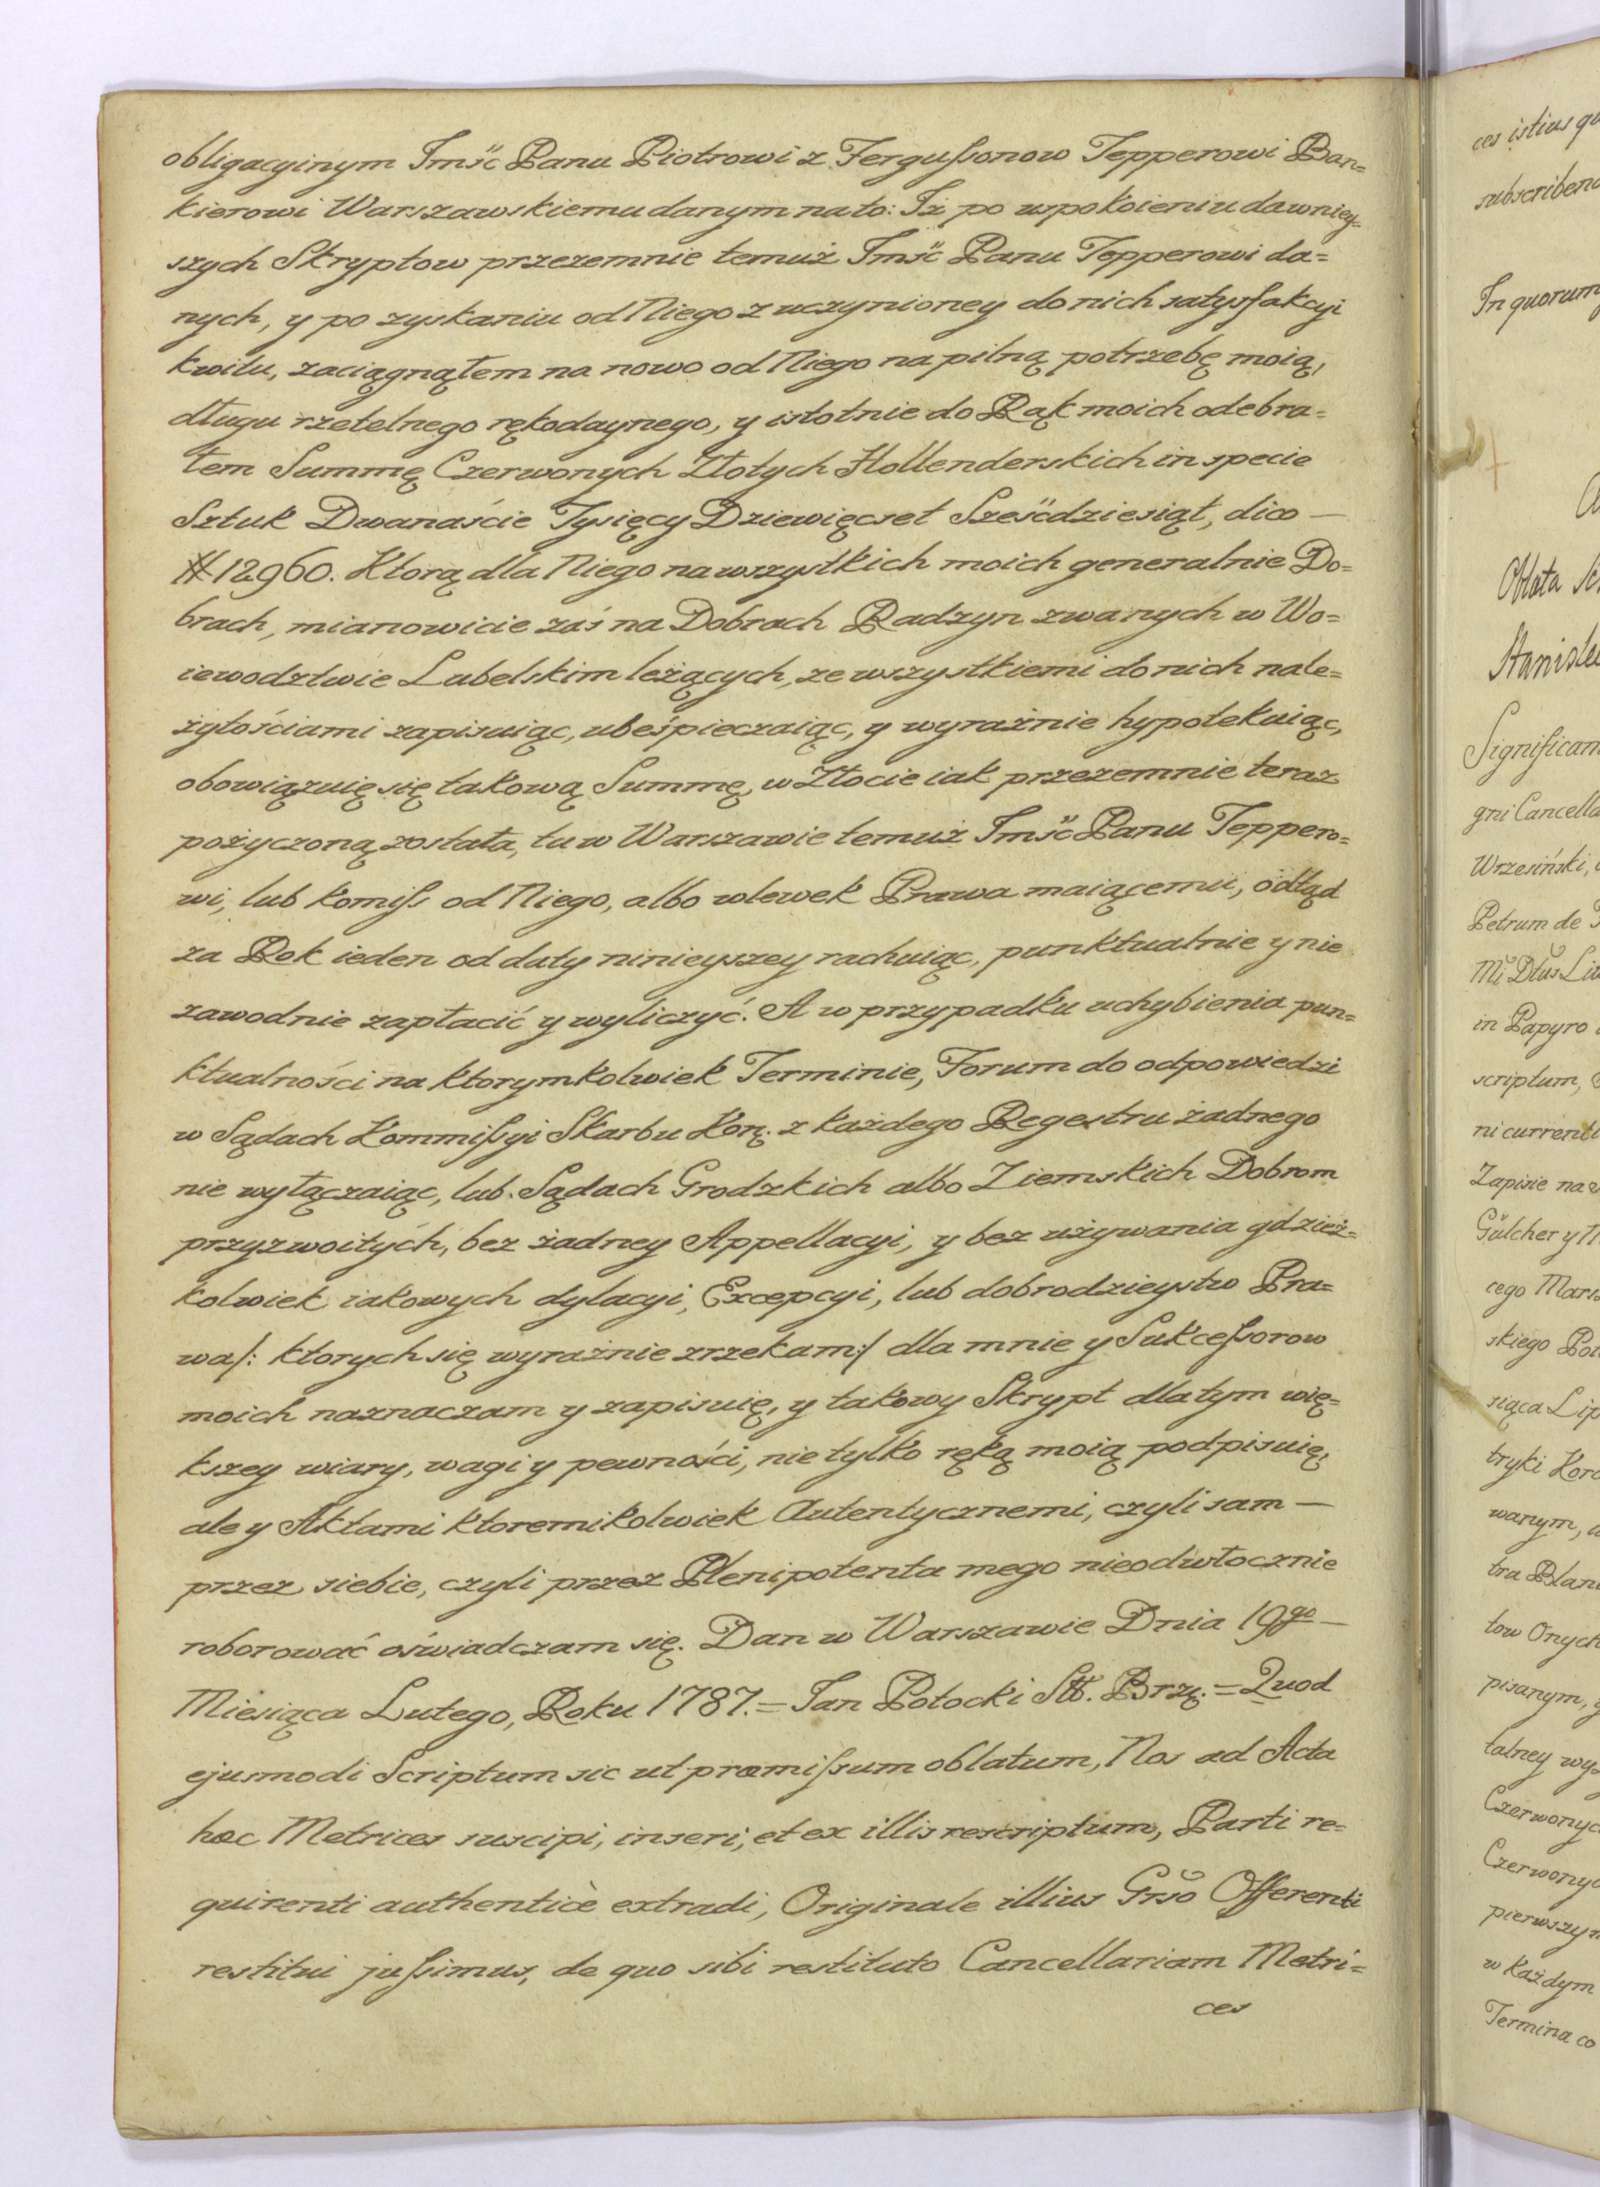 obligacyinym Jmść Panu Piotrowi z Fergussonow Tepperowi Ban=
kierowi Warszawskiemu danym na to: Iż po uspokoieniu dawniey=
szych Skryptow przezemnie temuż Jmść Panu Tepperowi da=
nych, y po zyskaniu od Niego z uczynioney do nich satysfakcyi
kwitu, zaciągnąłem na nowo od Niego na pilną potrzebę moią,
długu rzetelnego rękodaynego, y istotnie do Rąk moich odebra=
łem Summę Czerwonych Złotych Hollenderskich in specie
Sztuk Dwanaście Tysięcy Dziewięcset Sześćdziesiąt, dico —
# 12960. Którą dla Niego na wszystkich moich generalnie Do=
brach, mianowicie zaś na Dobrach Radzyn zwanych w Wo=
iewodztwie Lubelskim leżących, ze wszystkiemi do nich nale=
żytościami zapisuiąc, ubeśpieczaiąc, y wyraźnie hypotekuiąc,
obowiązuię się takową Summę, w Złocie iak przezemnie teraz
pożyczoną została, tu w Warszawie temuż Jmść Panu Teppero=
wi, lub komiss od Niego, albo wlewek Prawa maiącemu, odtąd
za Rok ieden od daty ninieyszey rachuiąc, punktualnie y nie
zawodnie zapłacić y wyliczyć. A w przypadku uchybienia pun=
ktualności na ktorymkolwiek Terminie, Forum do odpowiedzi
w Sądach Kommissyi Skarbu Korą. z każdego Regestru żadnego
nie wyłączaiąc, lub Sądach Grodzkich albo Ziemskich Dobrom
przyzwoitych, bez żadney Appellacyi, y bez używania gdzież=
kolwiek iakowych dylacyi, Excepcyi, lub dobrodzieystw Pra=
wa/: ktorych się wyraźnie zrzekam:/ dla mnie y Sukcessorow
moich naznaczam y zapisuię, y takowy Skrypt dla tym wię=
kszey wiary, wagi y pewności, nie tylko ręką moią podpisuię,
ale y Aktami ktoremikolwiek Autentycznemi, czyli sam —
przez siebie, czyli przez Plenipotenta mego nieodwłocznie
roborować oświadczam się. Dan w Warszawie Dnia 19go —
Miesiąca Lutego, Roku 1787. = Jan Potocki Stt. Brzę. = Quod
ejusmodi Scriptum sic ut præmissum oblatum, Nos ad Acta
hæc Metrices suscipi, inseri, et ex illis rescriptum, Parti re=
quirenti authenticè extradi, Originale illius Grso Offerenti
restitui jussimus, de quo sibi restituto Cancellariam Metri=
ces
ces istius qu
subscriben
In quorum
Oblata Sc
Stanisła
Significam
gni Cancella
Wrzesiński,
Petrum de
Mi Dłus Lit
in Papyro
scriptum,
ni currenti
Zapisie na
Gülcher y
cego Mars
skiego Po
siąca Lip
tryki Koro
wanym,
tra Blan
tow Onych
pisanym, y
talney wy
Czerwonyc
Czerwony
pierwszy
w każdym
Termina co